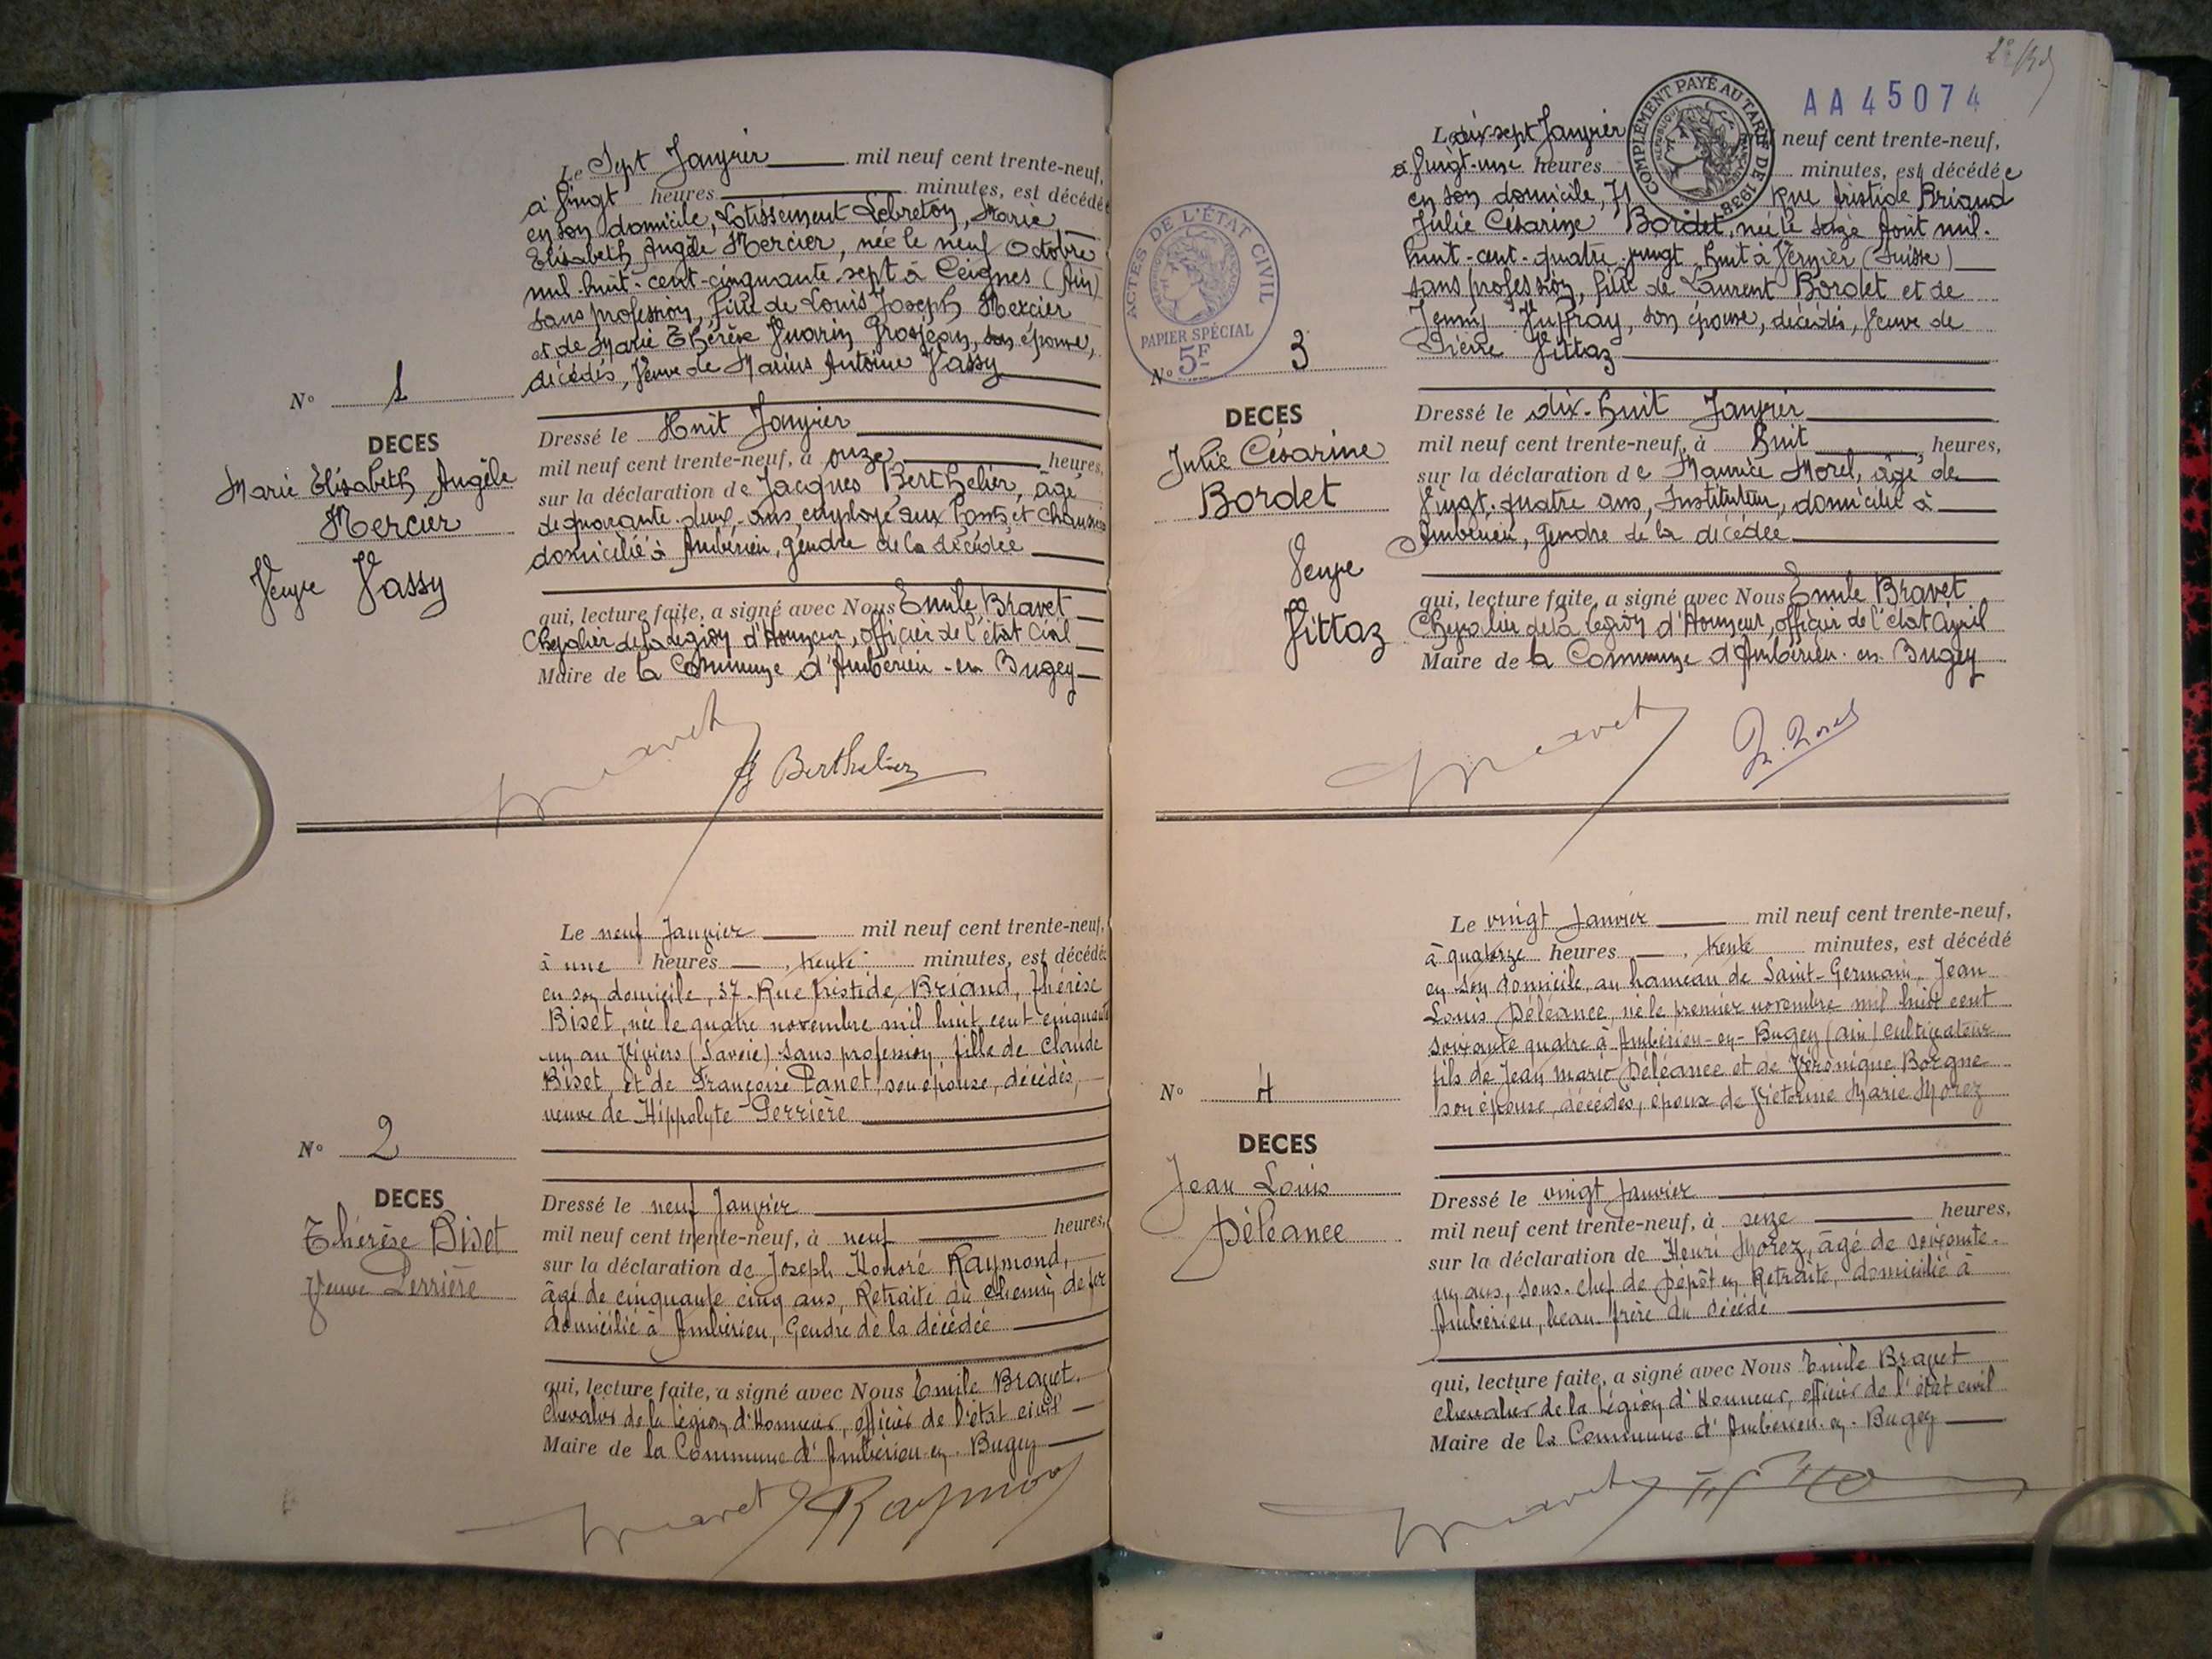 Le Sept Janvier mil neuf cent trente-neuf,
à Vingt heures minutes, est décédée
en son domicile, Lotissement Lebreton, Marie
Elisabeth Angèle Mercier, née le neuf Octobre
mil-huit-cent-cinquante-sept à Ceignes (Ain)
sans profession, fille de Louis Joseph Mercier
et de Marie Thérèse Grosjean, son épouse,
décédés, Veuve de Marius Antoine Vassy
N° 1
DECES
Marie Elisabeth Angèle
Mercier
Veuve Vassy
Dressé le Huit Janvier
mil neuf cent trente-neuf, à onze heures,
sur la déclaration de Jacques Berthelier, âgé
de quarante-deux-ans, employé aux Ponts et Chaussées
domicilié à Ambérieu, gendre de la décédée
qui, lecture faite, a signé avec Nous Emile Bravet
Chevalier de la Légion d'Honneur, officier de l'état Civil
Maire de la Commune d'Ambérieu-en Bugey
Bravet
J Berthelier
Le neuf Janvier mil neuf cent trente-neuf,
à une heures, trente minutes, est décédée
en son domicile, 37 Rue Aristide Briand, Thérèse
Biset, née le quatre novembre mil huit cent cinquante
un au Viviers (Savoie) sans profession fille de Claude
Biset et de Françoise Panet, son épouse, décédés,
veuve de Hippolyte Perrière
N° 2
DECES
Thérèse Biset
Veuve Perrière
Dressé le neuf Janvier
mil neuf cent trente-neuf, à neuf heures,
sur la déclaration de Joseph Honoré Raymond,
âgé de cinquante cinq ans, Retraité du chemin de fer
domicilié à Ambérieu, Gendre de la décédée
qui, lecture faite, a signé avec Nous Emile Bravet.
Chevalier de la Légion d'Honneur, officier de l'état civil
Maire de la Commune d'Ambérieu-en-Bugey
Bravet
Raymond
AA45074
COMPLÉMENT PAYÉ AU TARIF DE 1938
Le dix-sept Janvier neuf cent trente-neuf,
à Vingt-une heures minutes, est décédée
en son domicile, 71 Rue Aristide Briand
Julie Césarine Bordet, née le Seize Août mil-
huit-cent-quatre-vingt-huit à Vernier (Suisse)
sans profession, fille de Laurent Bordet et de
Jenny, son épouse, décédés, Veuve de
Pierre Vittaz
ACTES DE L'ÉTAT CIVIL
PAPIER SPÉCIAL
5F
N° 3
DECES
Julie Césarine
Bordet
Veuve
Vittaz
Dressé le dix-huit Janvier
mil neuf cent trente-neuf, à huit heures,
sur la déclaration de Maurice Morel, âgé de
Vingt-quatre ans, Instituteur, domicilié à
Ambérieu, gendre de la décédée
qui, lecture faite, a signé avec Nous Emile Bravet
Chevalier de la Légion d'Honneur, officier de l'état Civil
Maire de la Commune d'Ambérieu-en-Bugey
Bravet
Morel
Le vingt Janvier mil neuf cent trente-neuf,
à quatorze heures, trente minutes, est décédé
en son domicile, au hameau de Saint-Germain, Jean
Louis Déléance, né le premier novembre mil huit cent
soixante quatre à Ambérieu-en-Bugey (ain) cultivateur
fils de Jean Marie Déléance et de Véronique Borgne
son épouse, décédés, époux de Victorine Marie Morez
N° 4
DECES
Jean Louis
Déléance
Dressé le vingt Janvier
mil neuf cent trente-neuf, à seize heures,
sur la déclaration de Henri Morez, âgé de soixante-
un ans, sous-chef de Dépôt en Retraite, domicilié à
Ambérieu, beau-frère du décédé
qui, lecture faite, a signé avec Nous Emile Bravet
Chevalier de la Légion d'Honneur, officier de l'état civil
Maire de la Commune d'Ambérieu-en-Bugey
Bravet